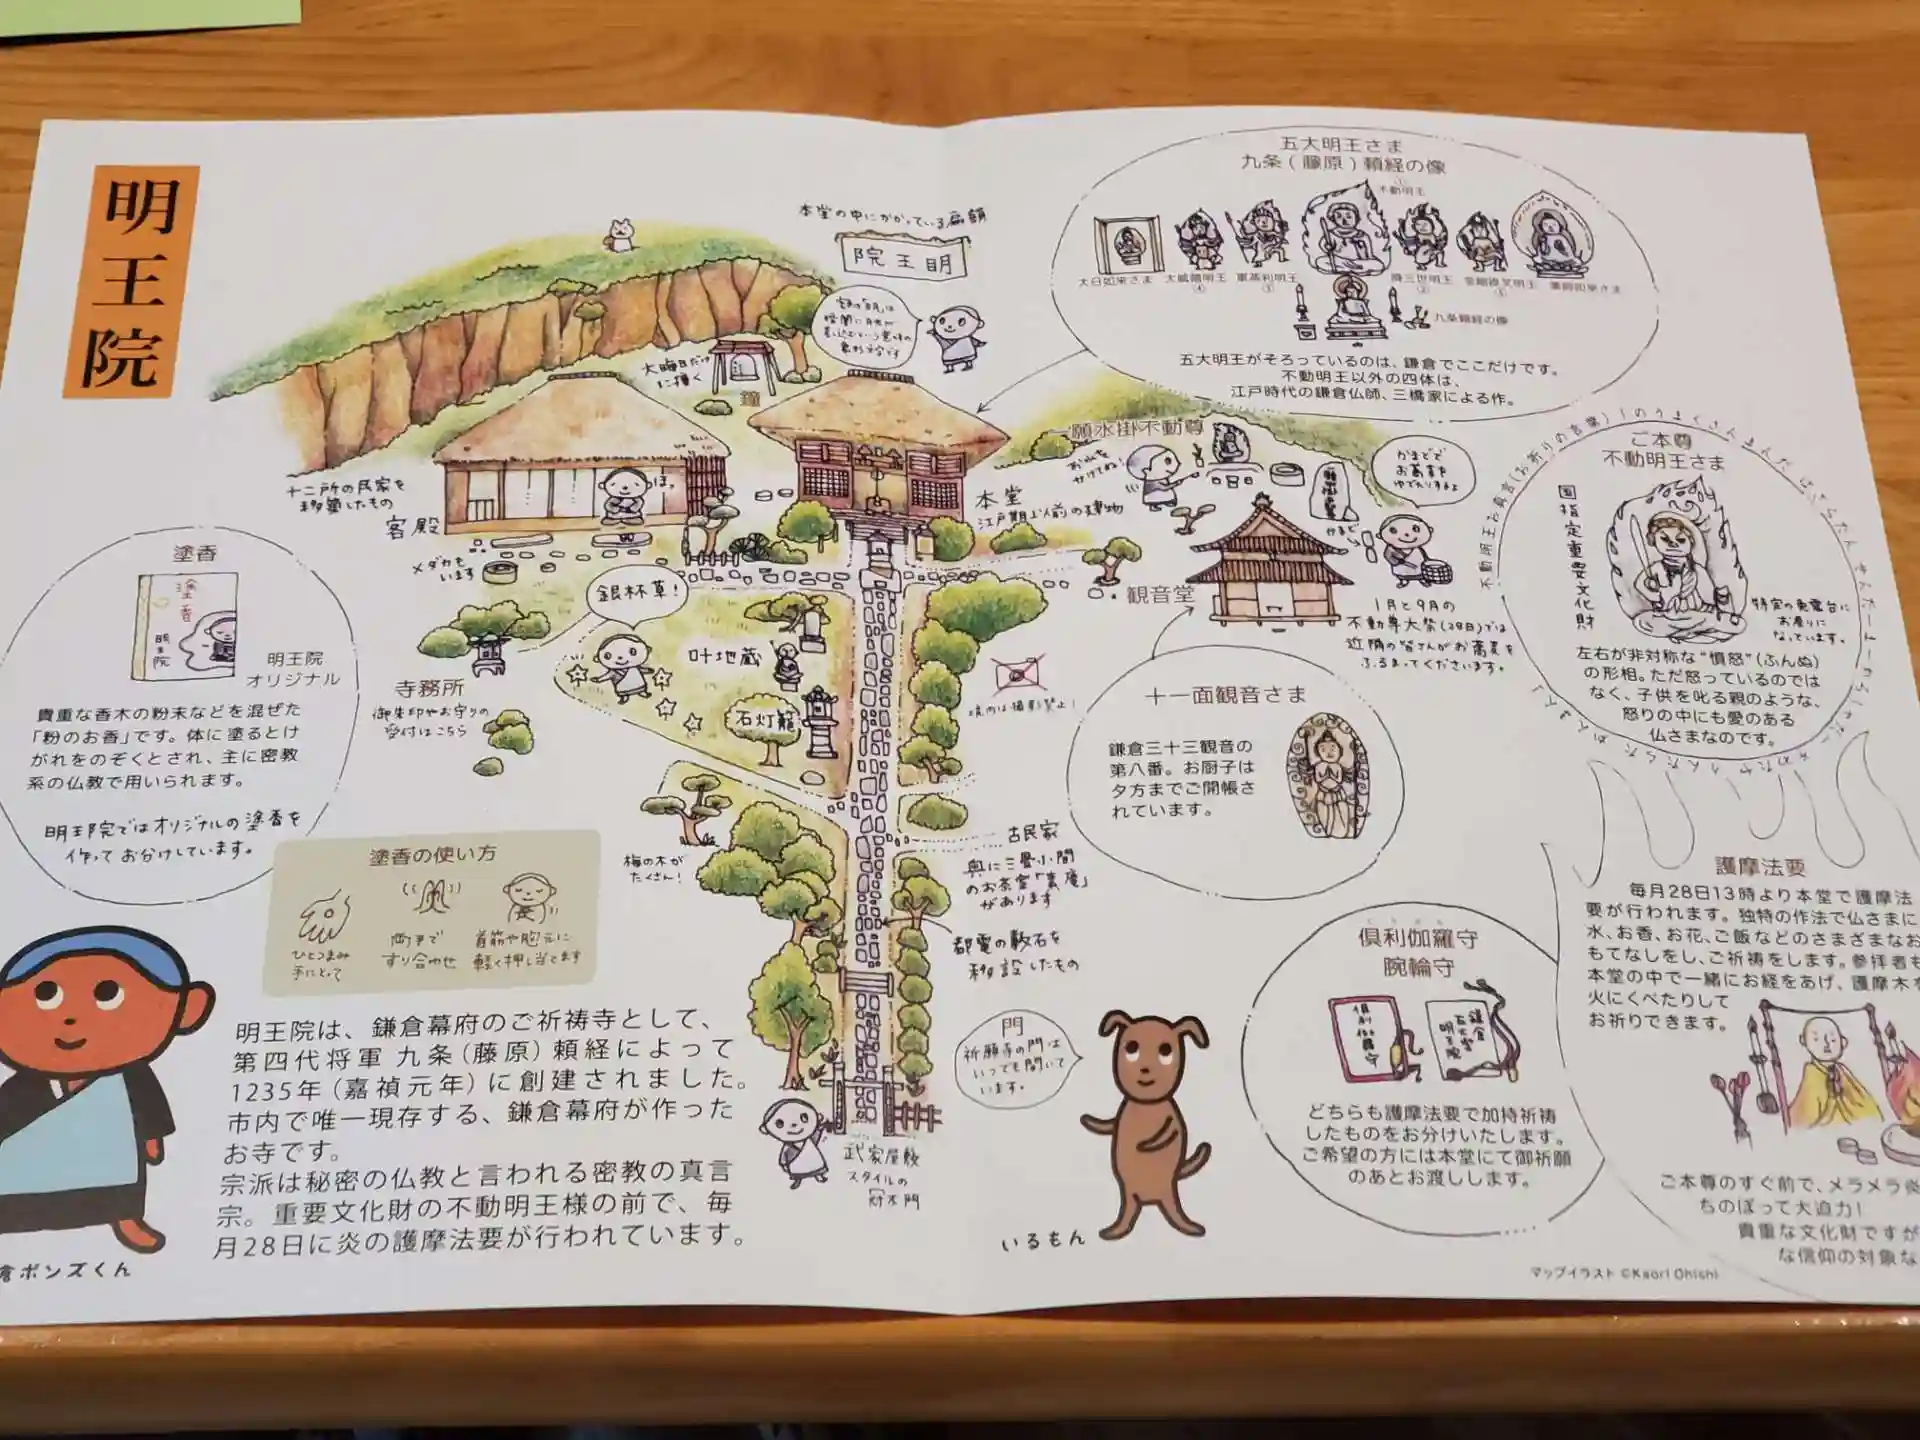 明王院
本堂の中にかかっている扁額
院王明
大晦日だけに撞く
鐘
十二所の民家を
移築したもの
客殿
ほっ
メダカも
います
本堂
江戸期以前の建物
一願水掛不動尊
お水を
かけてね!
かまどで
お蕎麦を
ゆでたりするよ
かまど
観音堂
1月と9月の
不動尊大祭(28日)では
近隣の皆さんがお蕎麦を
ふるまってくださいます。
五大明王さま
九条(藤原)頼経の像
①
不動明王
大日如来さま
大威徳明王
④
軍荼利明王
③
降三世明王
②
金剛夜叉明王
⑤
薬師如来さま
九条頼経の像
五大明王がそろっているのは、鎌倉でここだけです。
不動明王以外の四体は、
江戸時代の鎌倉仏師、三橋家による作。
ご本尊
不動明王さま
国指定重要文化財
特定の免震台に
お座りに
なっています。
左右が非対称な“憤怒”(ふんぬ)
の形相。ただ怒っているのでは
なく、子供を叱る親のような、
怒りの中にも愛のある
仏さまなのです。
塗香
塗香
明王院
明王院
オリジナル
貴重な香木の粉末などを混ぜた
「粉のお香」です。体に塗るとけ
がれをのぞくとされ、主に密教
系の仏教で用いられます。
明王院ではオリジナルの塗香を
作ってお分けしています。
塗香の使い方
ひとつまみ
手にとって
両手で
すり合わせ
首筋や胸元に
軽く押し当てます
銀杯草!
寺務所
御朱印やお守りの
受付はこちら
叶地蔵
石灯籠
梅の木が
たくさん!
境内は撮影禁止!
十一面観音さま
鎌倉三十三観音の
第八番。お厨子は
夕方までご開帳さ
れています。
古民家
奥に三畳小間
のお茶室
があります
都電の敷石を
移設したもの
門
祈願寺の門は
いつでも開いて
います。
武家屋敷
スタイルの
いるもん
倶利伽羅守
腕輪守
倶利伽羅守
鎌倉
五大堂
明王院
どちらも護摩法要で加持祈祷
したものをお分けいたします。
ご希望の方には本堂にて御祈願
のあとお渡しします。
護摩法要
毎月28日13時より本堂で護摩法
要が行われます。独特の作法で仏さまに
水、お香、お花、ご飯などのさまざまなお
もてなしをし、ご祈祷をします。参拝者も
本堂の中で一緒にお経をあげ、護摩木を
火にくべたりして
お祈りできます。
ご本尊のすぐ前で、メラメラ炎
ちのぼって大迫力!
貴重な文化財ですが
な信仰の対象な
明王院は、鎌倉幕府のご祈祷寺として、
第四代将軍 九条(藤原)頼経によって
1235年(嘉禎元年)に創建されました。
市内で唯一現存する、鎌倉幕府が作った
お寺です。
宗派は秘密の仏教と言われる密教の真言
宗。重要文化財の不動明王様の前で、毎
月28日に炎の護摩法要が行われています。
倉ボンズくん
マップイラスト ©Kaori Ohishi